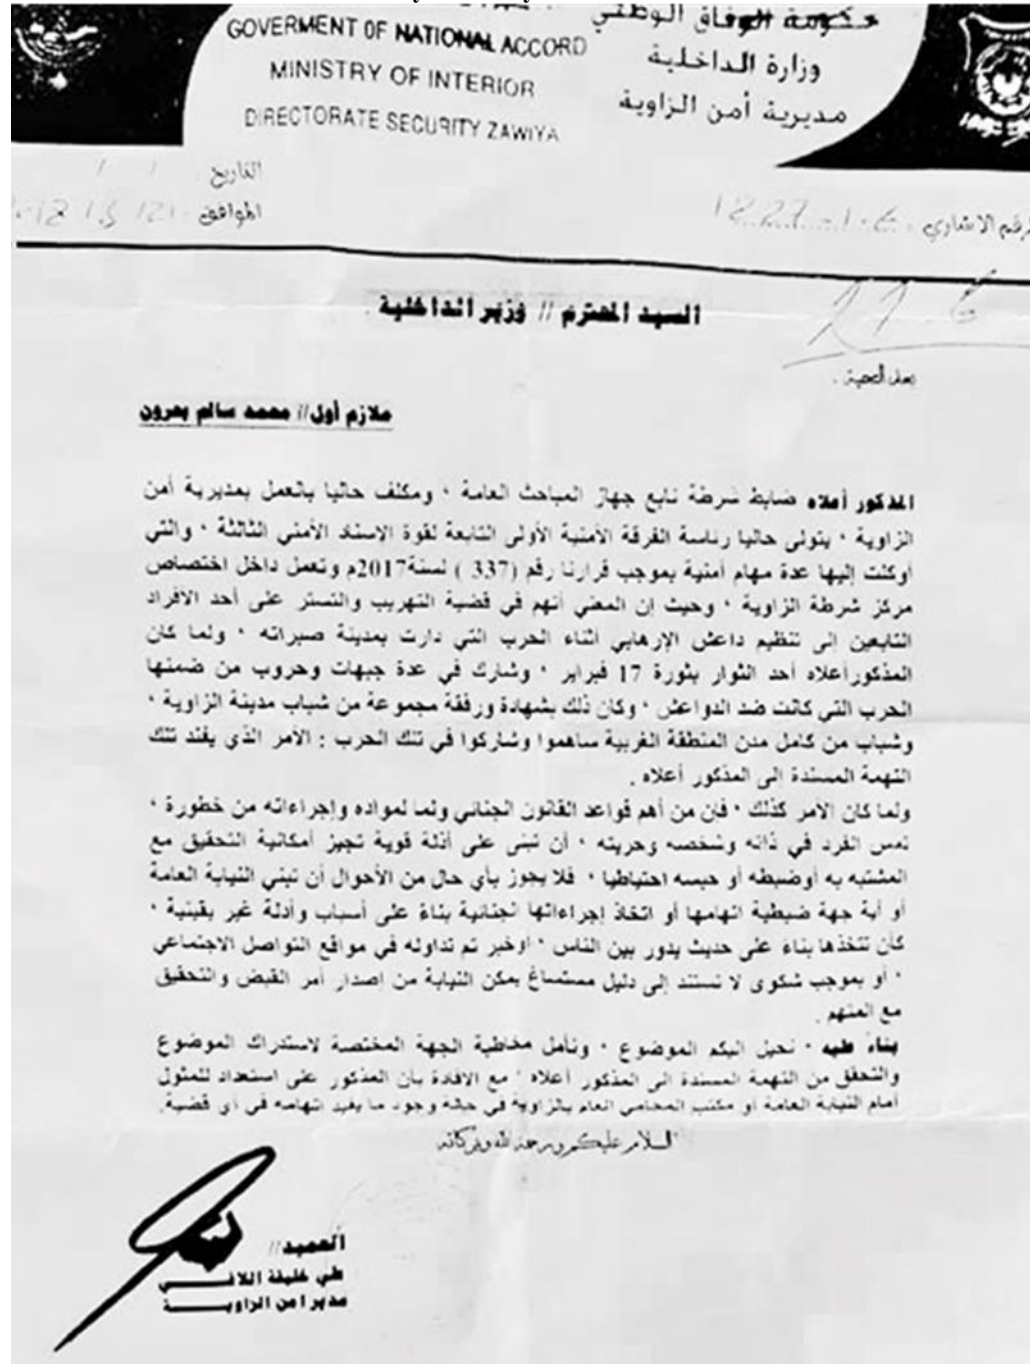 حكومة الوفاق الوطني
GOVERMENT OF NATIONAL ACCORD
وزارة الداخلية
MINISTRY OF INTERIOR
مديرية أمن الزاوية
DIRECTORATE SECURITY ZAWIYA
التاريخ / /
الموافق
الرقم الاشاري
السيد المحترم // وزير الداخلية .
بعد التحية .
ملازم أول// محمد سالم بحرون
المذكور أعلاه ضابط شرطة تابع جهاز المباحث العامة ، ومكلف حاليا بالعمل بمديرية أمن
الزاوية ، يتولى حاليا رئاسة الفرقة الأمنية الأولى التابعة لقوة الاسناد الأمني الثالثة ، والتي
أوكلت إليها عدة مهام أمنية بموجب قرارنا رقم (337 ) لسنة2017م وتعمل داخل اختصاص
مركز شرطة الزاوية ، وحيث إن المعني أتهم في قضية التهريب والتستر على أحد الأفراد
التابعين إلى تنظيم داعش الإرهابي أثناء الحرب التي دارت بمدينة صبراته ، ولما كان
المذكورأعلاه أحد الثوار بثورة 17 فبراير ، وشارك في عدة جبهات وحروب من ضمنها
الحرب التي كانت ضد الدواعش ، وكان ذلك بشهادة ورفقة مجموعة من شباب مدينة الزاوية ،
وشباب من كامل مدن المنطقة الغربية ساهموا وشاركوا في تلك الحرب : الأمر الذي يفند تلك
التهمة المسندة الى المذكور أعلاه .
ولما كان الامر كذلك ، فان من أهم قواعد القانون الجنائي ولما لمواده وإجراءاته من خطورة ،
تمس الفرد في ذاته وشخصه وحريته ، أن تبنى على أدلة قوية تجيز أمكانية التحقيق مع
المشتبه به أوضبطه أو حبسه احتياطيا ، فلا يجوز بأي حال من الأحوال أن تبني النيابة العامة
أو أية جهة ضبطية اتهامها أو اتخاذ إجراءاتها الجنائية بناءً على أسباب وأدلة غير يقينية ،
كأن تتخذها بناءً على حديث يدور بين الناس ، اوخبر تم تداوله في مواقع التواصل الاجتماعي
، أو بموجب شكوى لا تستند إلى دليل مستساغ يمكن النيابة من اصدار أمر القبض والتحقيق
مع المتهم .
بناءً عليه ، نحيل اليكم الموضوع ، ونأمل مخاطبة الجهة المختصة لاستدراك الموضوع
والتحقق من التهمة المسندة الى المذكور أعلاه ، مع الافادة بأن المذكور على استعداد للمثول
أمام النيابة العامة او مكتب المحامي العام بالزاوية في حالة وجود ما يفيد اتهامه في أي قضية.
السلام عليكم ورحمة الله وبركاته
العميد//
علي خليفة اللافي
مدير امن الزاوية